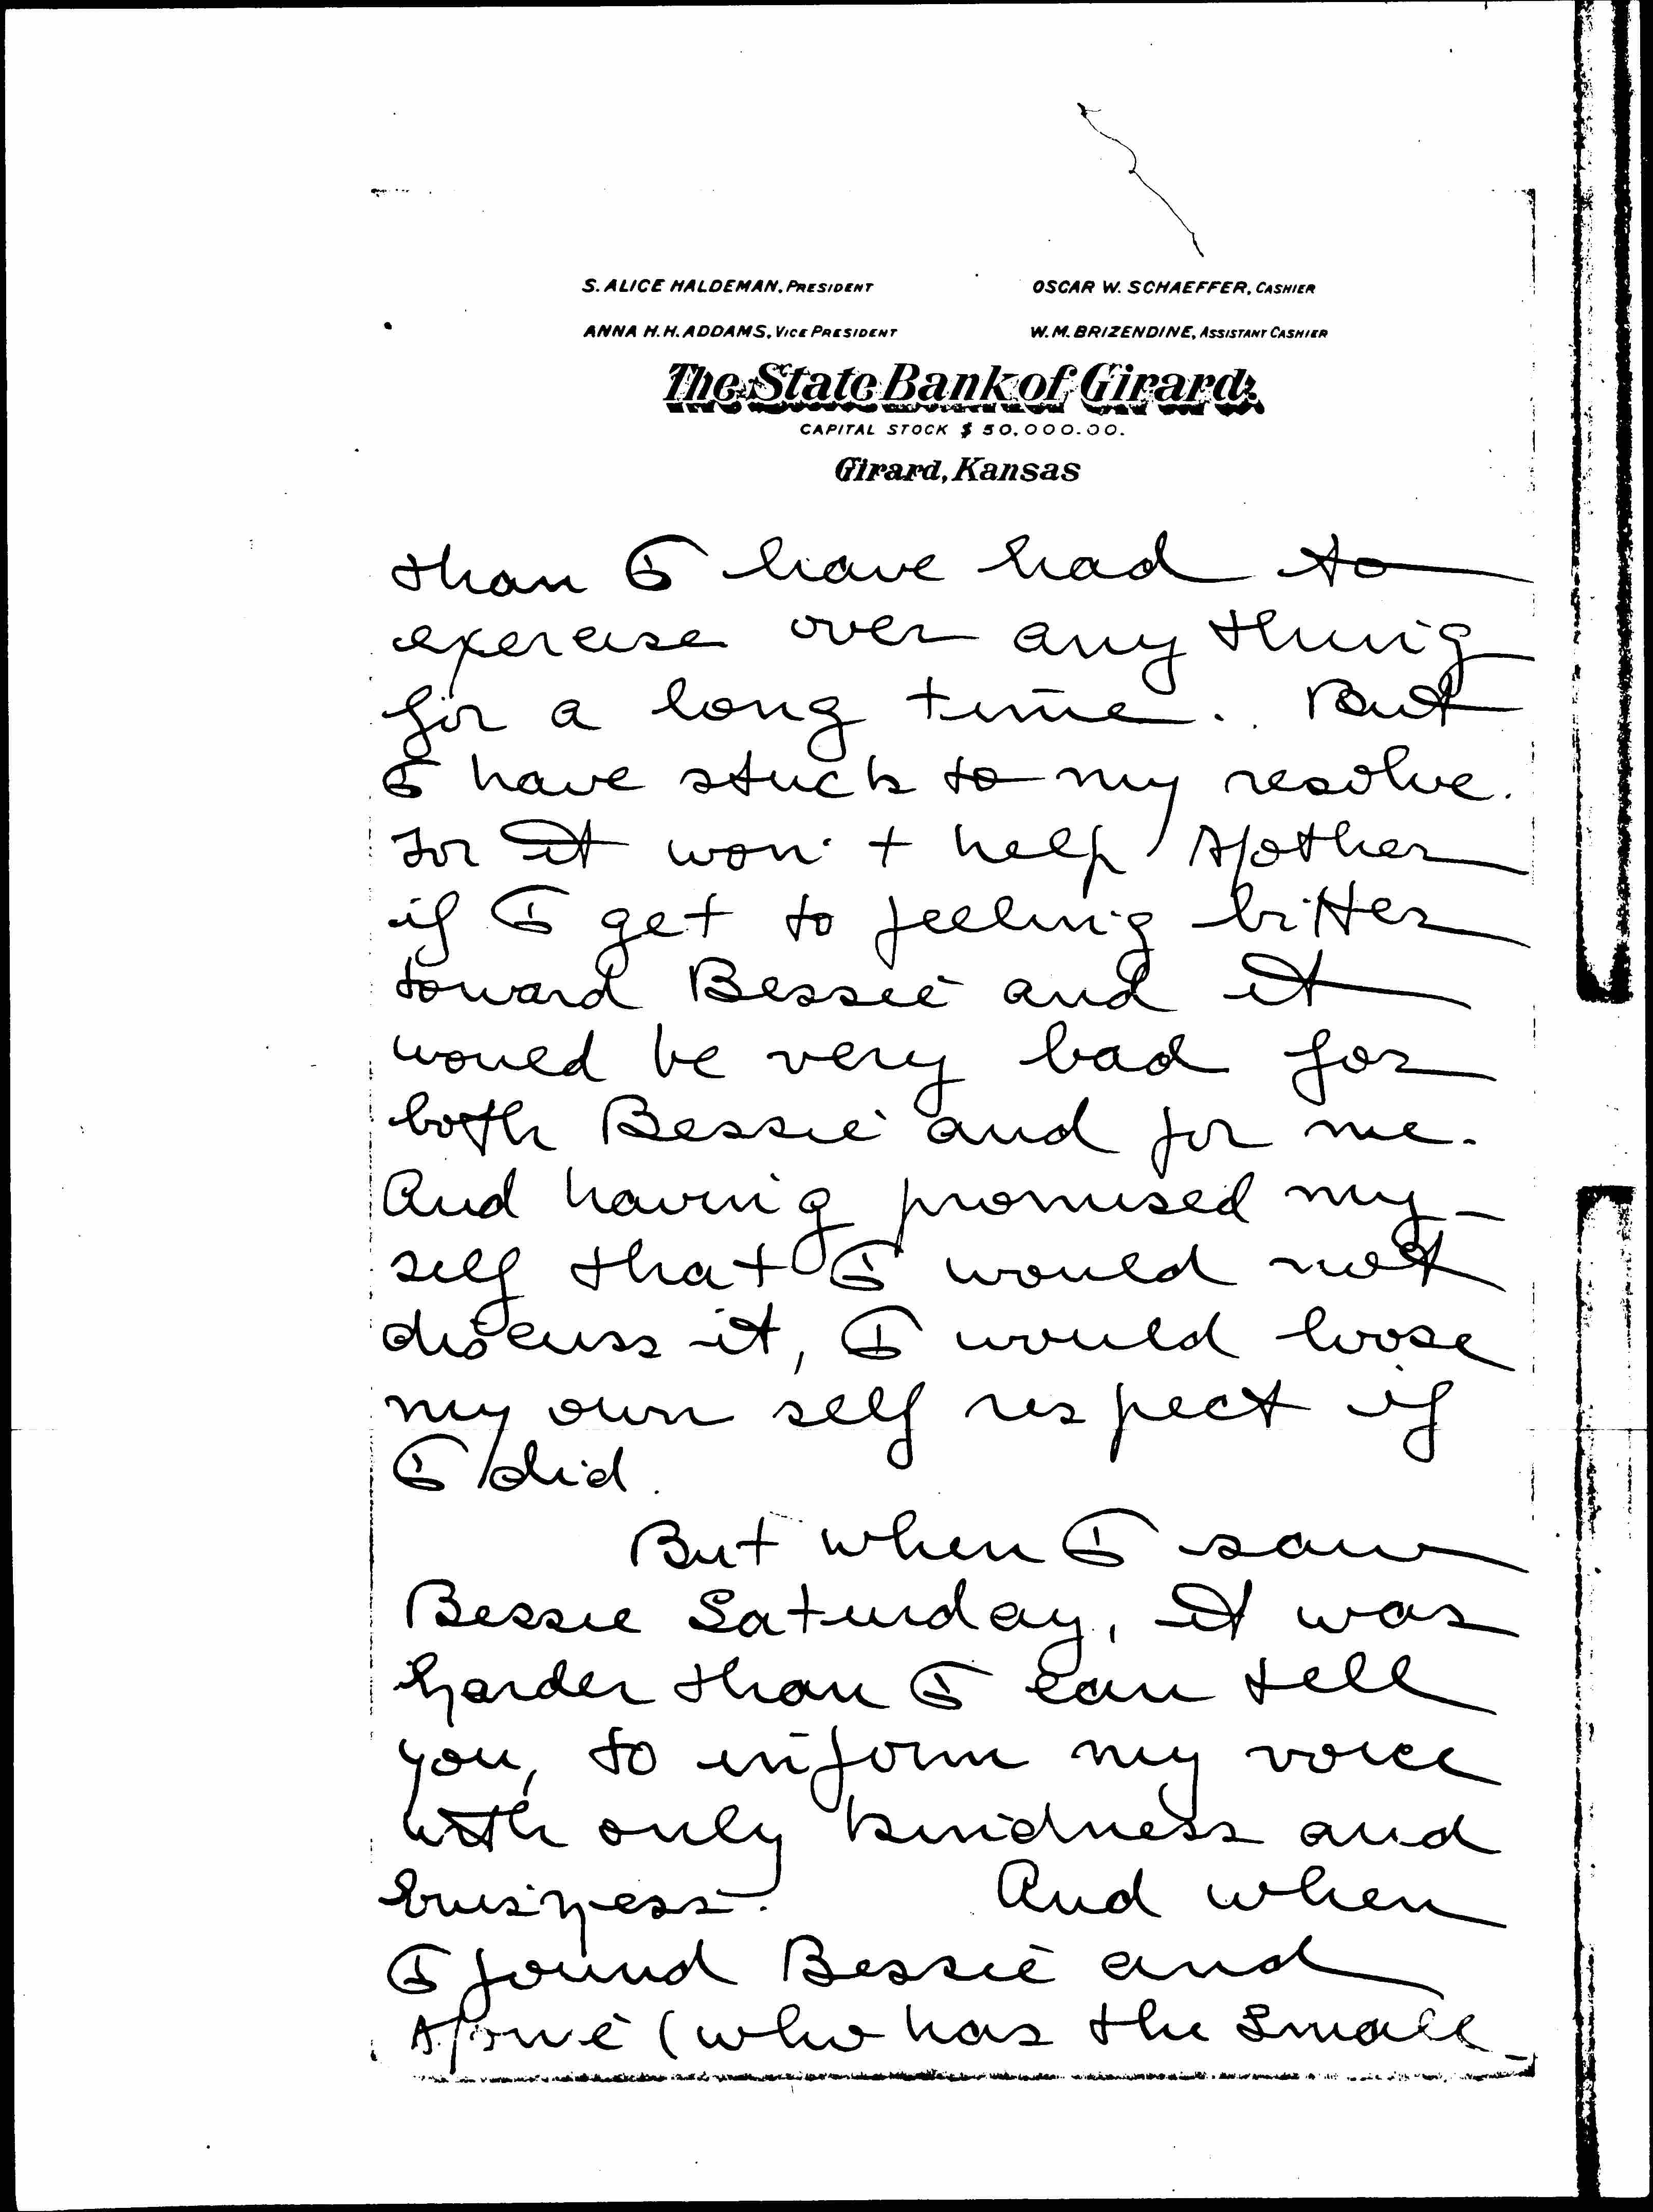 S. ALICE HALDEMAN, PRESIDENT
OSCAR W. SCHAEFFER, CASHIER
ANNA H. H. ADDAMS, VICE PRESIDENT
W. M. BRIZENDINE, ASSISTANT CASHIER
The State Bank of Girard.
CAPITAL STOCK $ 50,000.00.
Girard, Kansas
than I have had to
exercise over any thing
for a long time. But
I have stuck to my resolve.
For it won't help Mother
if I get to feeling bitter
toward Bessie and it
would be very bad for
both Bessie and for me.
And having promised my-
self that I would not
discuss it, I would loose
my own self respect if
I did.
But when I saw
Bessie Saturday, it was
harder than I can tell
you, to inform my voice
with only kindness and
business. And when
I found Bessie and
(who has the Small-